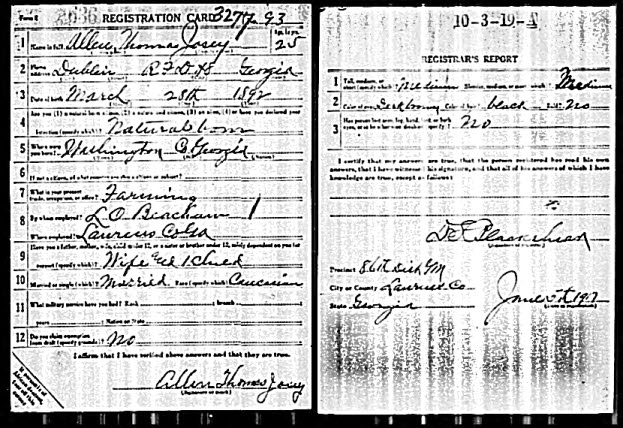 Form 2 2036 REGISTRATION CARD 3277 93
1 Name in full Allen Thomas Josey Age, in yrs. 25
2 Home address Dublin R F D Georgia
3 Date of birth March 28th 1892
4 Are you (1) a natural-born citizen, (2) a naturalized citizen, (3) an alien, (4) or have you declared your
intention (specify which)? Natural born
5 Where were you born? Washington Co Georgia
6 If not a citizen, of what country are you a citizen or subject?
7 What is your present trade, occupation, or office? Farming
8 By whom employed? L. O. Beacham
Where employed? Laurens Co Ga
9 Have you a father, mother, wife, child under 12, or a sister or brother under 12, solely dependent on you for
support (specify which)? Wife and 1 Child
10 Married or single (which)? Married Race (specify which)? Caucasian
11 What military service have you had? Rank branch
years Nation or State
12 Do you claim exemption from draft (specify grounds)? No
I affirm that I have verified above answers and that they are true.
Allen Thomas Josey
(Signature or mark)
10-3-19-A
REGISTRAR'S REPORT
1 Tall, medium, or short (specify which)? Medium Slender, medium, or stout (which)? Medium
2 Color of eyes? Dark brown Color of hair? black Bald? No
3 Has person lost arm, leg, hand, foot, or both eyes, or is he otherwise disabled (specify)? No
I certify that my answers are true, that the person registered has read his own
answers, that I have witnessed his signature, and that all of his answers of which I have
knowledge are true, except as follows:
Precinct 86th Dist GM
City or County Laurens Co.
State Georgia June 5th 1917